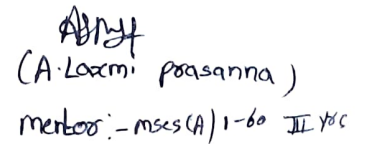 (A. Laxmi prasanna)
mentor:- mscs (A) 1-60 III yrs